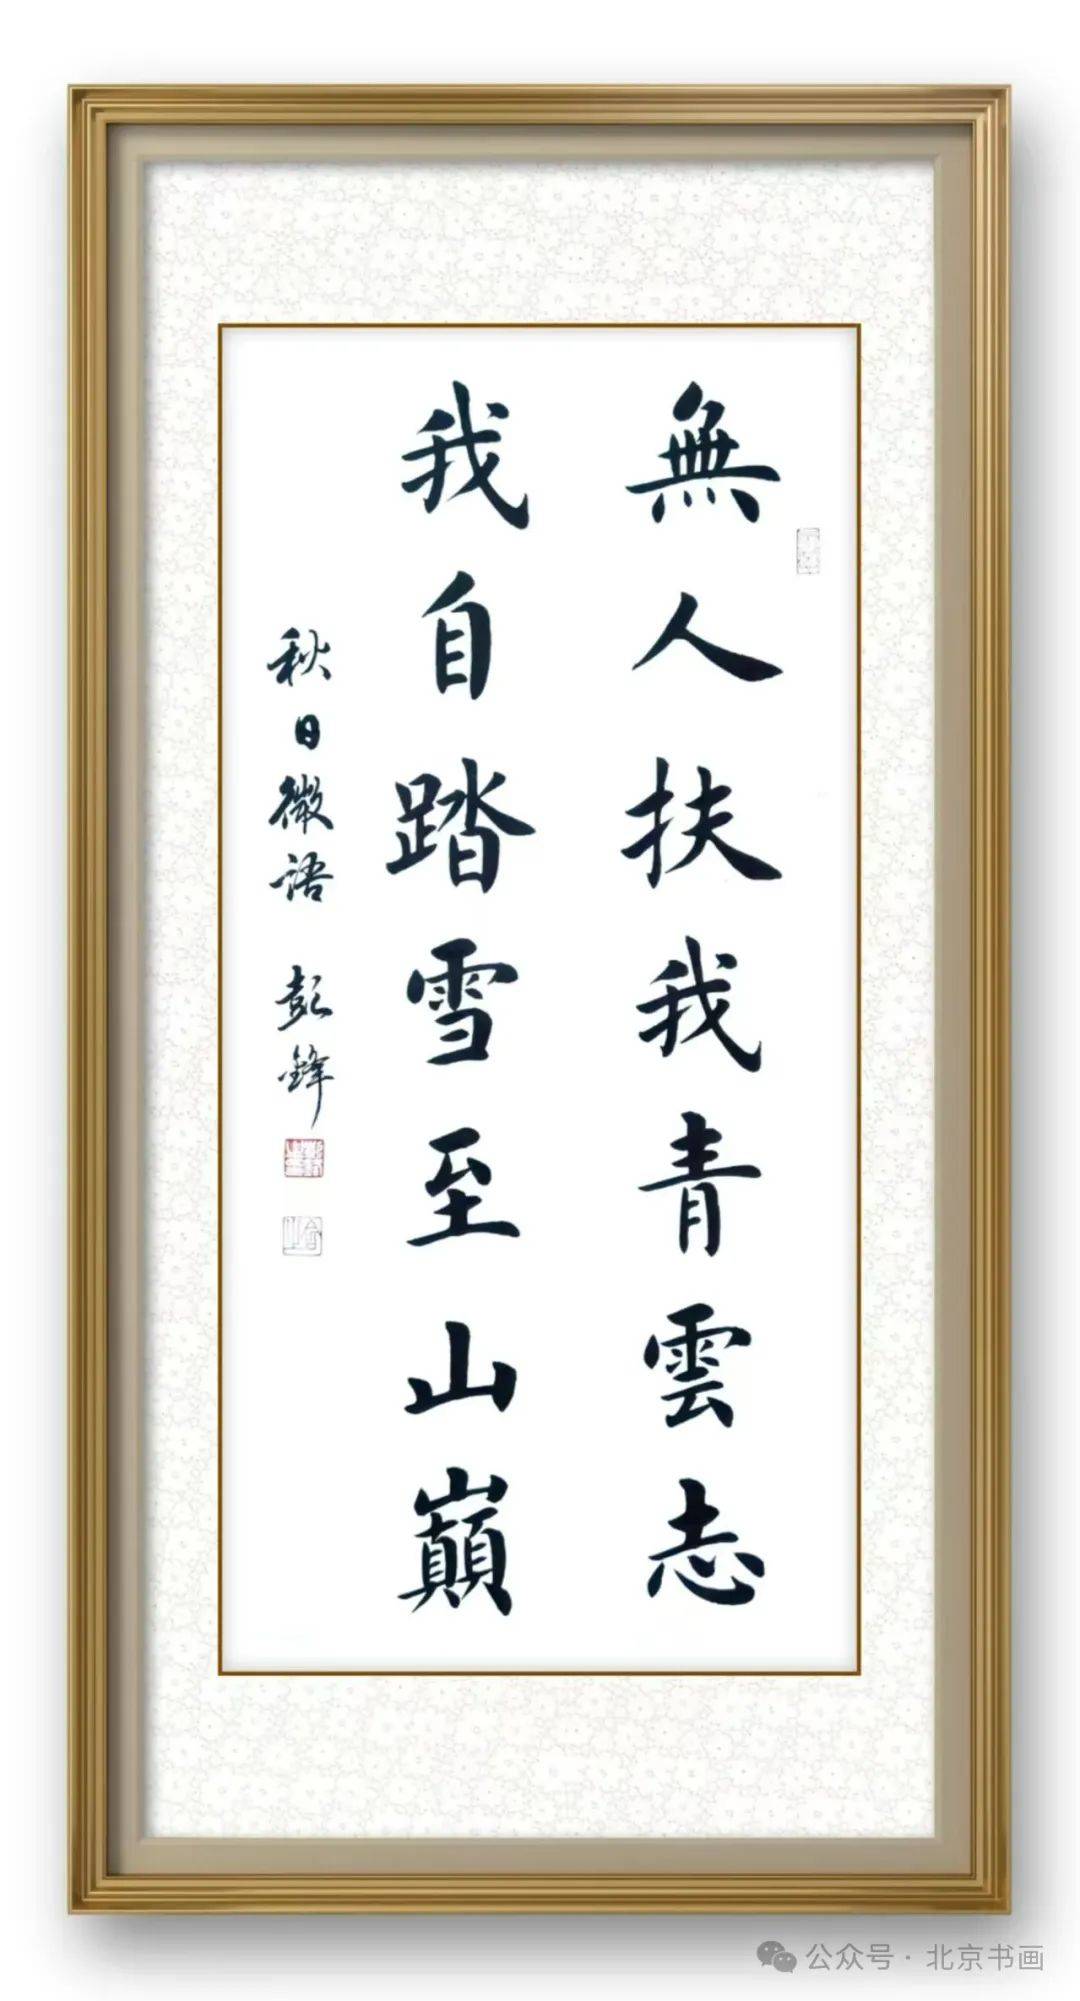 無人扶我青雲志
我自踏雪至山巔
秋日微语 彭鋒
公众号·北京书画